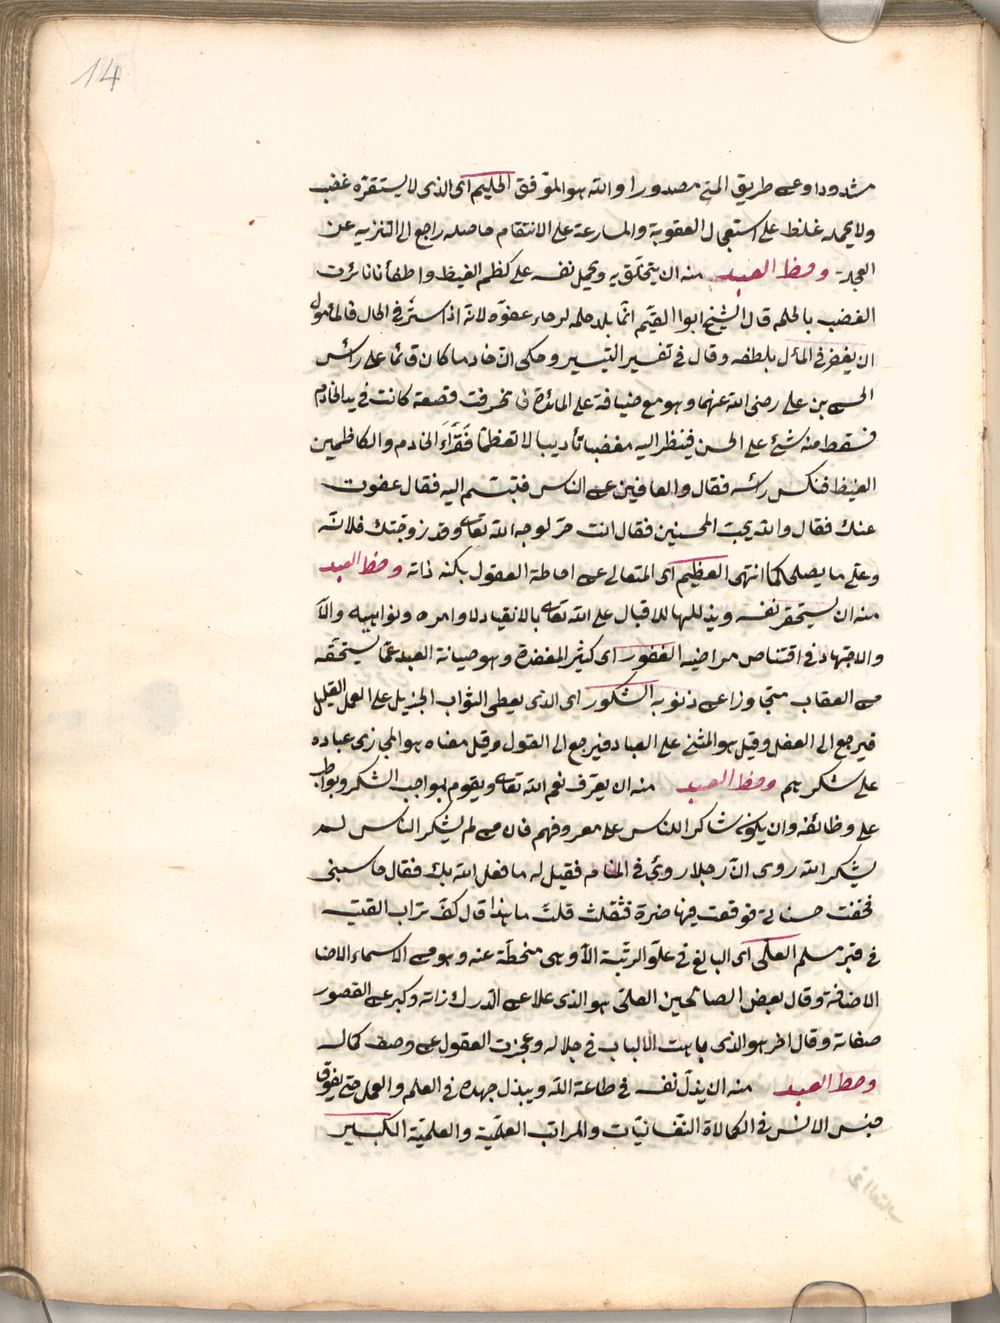 14
مشدودا وعن طريق المنع مصدورا والله هو الموفق الحليم اى الذى لا يستفزه غضب
ولا يحمله غلظ على استعجال العقوبة والمسارعة على الانتقام حاصله راجع الى التنزيه عن
العجلة وحظ العبد منه ان يتخلق به ويحمل نفسه على كظم الغيظ واطفأ نائرت
الغضب بالحلم قال الشيخ ابوا القيم انما يلذ حلمه لرجاء عفوه لانه اذا ستر فى الحال فالمأمول
ان يغفر فى المآل بلطفه وقال فى تفسير التيسير وحكى ان خادما كان قائما على رأس
الحسن بن على رضى الله عنهما وهو مع ضيافة على المائدة فانحرفت قصعة كانت فى يد الخادم
فسقط منه شئ على الحسن فينظر اليه مغضبا تأديبا لا تعظما فقرأ الخادم والكاظمين
الغيظ فنكس رأسه فقال والعافين عن الناس فتبسم اليه فقال عفوت
عنك فقال والله يحب المحسنين فقال انت حر لوجه الله تعالى وقد زوجتك فلانه
وعلى ما يصلحكما انتهى العظيم اى المتعالى عن احاطة العقول بكنه ذاته وحظ العبد
منه ان يستحقر نفسه ويذللها للاقبال على الله تعالى بالانقياد لاوامره ونواهيه والآ
والاجتهاد فى اقتناص مراضيه الغفور اى كثير المغفرة وهو صيانة العبد عما يستحقه
من العقاب متجاوزا عن ذنوبه الشكور اى الذى يعطى الثواب الجزيل على العمل القليل
فيرجع الى الفعل وقيل هو المثنى على العباد فيرجع الى القول وقيل معناه هو المجازى عباده
على شكرهم وحظ العبد منه ان يعرف نعم الله تعالى ويقوم بمواجب الشكر ويواظب
على وظائفه وان يكون شاكرا للناس على معروفهم فان من لم يشكر الناس لم
يشكر الله روى ان رجلا رؤى فى المنام فقيل له ما فعل الله بك فقال حاسبنى
فخفت حسناتى فوقعت فيها صرة فثقلت قلت ما هذا قال كف تراب القيت
فى قبر مسلم العلى اى البالغ فى علو الرتبة الا وهى منحطة عنه وهو من الاسماء الاضا
الاضافة وقال بعض الصالحين العلى هو الذى علا عن الدرك ذاته وكبر عن القصور
صفاته وقال اخر هو الذى تاهت الالباب فى جلاله وعجزت العقول عن وصف كماله
وحظ العبد منه ان يذل نفسه فى طاعة الله ويبذل جهده فى العلم والعمل حتى يفوق
جنس الانس فى الكمالاة النفسانيات والمراتب العلمية والعلمية الكبير